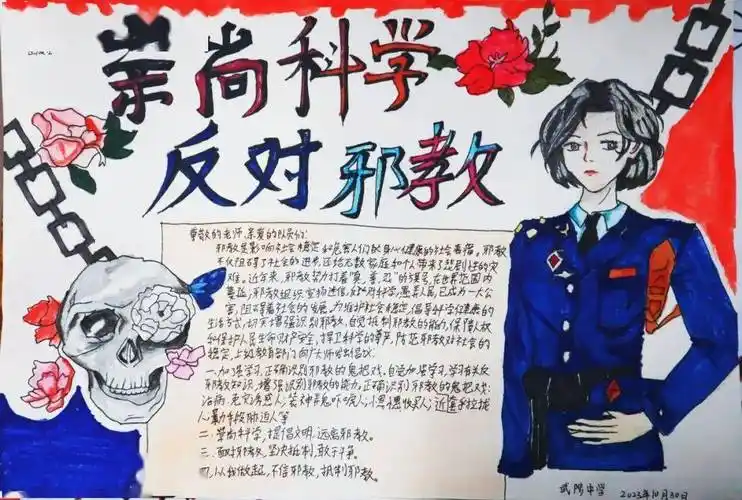 崇尚科学
反对邪教
尊敬的老师、亲爱的队员们:
邪教是影响社会稳定和危害人们的身心健康的社会毒瘤。邪教
不仅阻碍了社会的进步,还给无数家庭和个人带来了悲剧性的灾
难。近年来,邪教势力打着"真、善、忍"的旗号,在世界范围内
蔓延,邪教组织宣扬迷信,反对科学,愚弄人民,已成为一大公
害,阻碍着社会的发展。为维护社会稳定,倡导科学健康的
生活方式,切实增强识别邪教,自觉抵制邪教的能力,保障人权
和保护人民生命财产安全,捍卫科学的尊严,防范邪教对社会的
侵害,上级教育部门向广大师生倡议
一、加强学习,正确识别邪教的鬼把戏,自觉加强学习,学习有关反
邪教知识,增强识别邪教的能力,正确识别邪教的鬼把戏:
治病免灾诱惑人;装神弄鬼吓唬人;小恩小惠收买人;近拉拢
人;动手胁迫人等
二、崇尚科学,提倡文明,远离邪教。
三、面对邪教,坚决抵制,敢于斗争。
四、从我做起,不信邪教,抵制邪教。
武阳中学
2023年10月30日